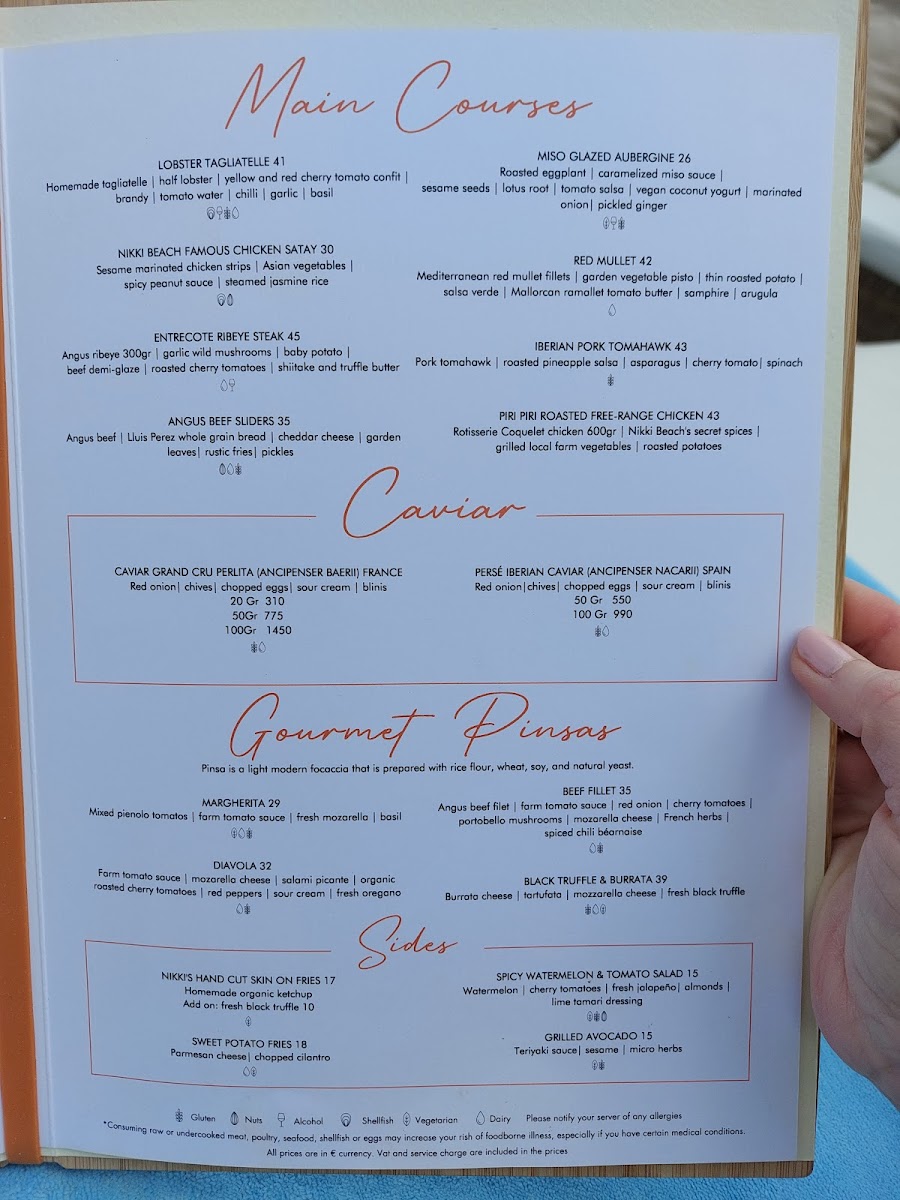 Main Courses
LOBSTER TAGLIATELLE 41
Homemade tagliatelle | half lobster | yellow and red cherry tomato confit |
brandy | tomato water | chilli | garlic | basil
NIKKI BEACH FAMOUS CHICKEN SATAY 30
Sesame marinated chicken strips | Asian vegetables |
spicy peanut sauce | steamed jasmine rice
ENTRECOTE RIBEYE STEAK 45
Angus ribeye 300gr | garlic wild mushrooms | baby potato |
beef demi-glaze | roasted cherry tomatoes | shiitake and truffle butter
ANGUS BEEF SLIDERS 35
Angus beef | Lluis Perez whole grain bread | cheddar cheese | garden
leaves| rustic fries| pickles
MISO GLAZED AUBERGINE 26
Roasted eggplant | caramelized miso sauce |
sesame seeds | lotus root | tomato salsa | vegan coconut yogurt | marinated
onion| pickled ginger
RED MULLET 42
Mediterranean red mullet fillets | garden vegetable pisto | thin roasted potato |
salsa verde | Mallorcan ramallet tomato butter | samphire | arugula
IBERIAN PORK TOMAHAWK 43
Pork tomahawk | roasted pineapple salsa | asparagus | cherry tomato| spinach
PIRI PIRI ROASTED FREE-RANGE CHICKEN 43
Rotisserie Coquelet chicken 600gr | Nikki Beach's secret spices |
grilled local farm vegetables | roasted potatoes
Caviar
CAVIAR GRAND CRU PERLITA (ANCIPENSER BAERII) FRANCE
Red onion| chives| chopped eggs| sour cream | blinis
20 Gr 310
50Gr 775
100Gr 1450
PERSÉ IBERIAN CAVIAR (ANCIPENSER NACARII) SPAIN
Red onion|chives| chopped eggs | sour cream | blinis
50 Gr 550
100 Gr 990
Gourmet Pinsas
Pinsa is a light modern focaccia that is prepared with rice flour, wheat, soy, and natural yeast.
MARGHERITA 29
Mixed pienolo tomatos | farm tomato sauce | fresh mozarella | basil
DIAVOLA 32
Farm tomato sauce | mozarella cheese | salami picante | organic
roasted cherry tomatoes | red peppers | sour cream | fresh oregano
BEEF FILLET 35
Angus beef filet | farm tomato sauce | red onion | cherry tomatoes |
portobello mushrooms | mozarella cheese | French herbs |
spiced chili béarnaise
BLACK TRUFFLE & BURRATA 39
Burrata cheese | tartufata | mozzarella cheese | fresh black truffle
Sides
NIKKI'S HAND CUT SKIN ON FRIES 17
Homemade organic ketchup
Add on: fresh black truffle 10
SWEET POTATO FRIES 18
Parmesan cheese| chopped cilantro
SPICY WATERMELON & TOMATO SALAD 15
Watermelon | cherry tomatoes | fresh jalapeño| almonds |
lime tamari dressing
GRILLED AVOCADO 15
Teriyaki sauce| sesame | micro herbs
Gluten Nuts Alcohol Shellfish Vegetarian Dairy Please notify your server of any allergies
*Consuming raw or undercooked meat, poultry, seafood, shellfish or eggs may increase your rish of foodborne illness, especially if you have certain medical conditions.
All prices are in € currency. Vat and service charge are included in the prices